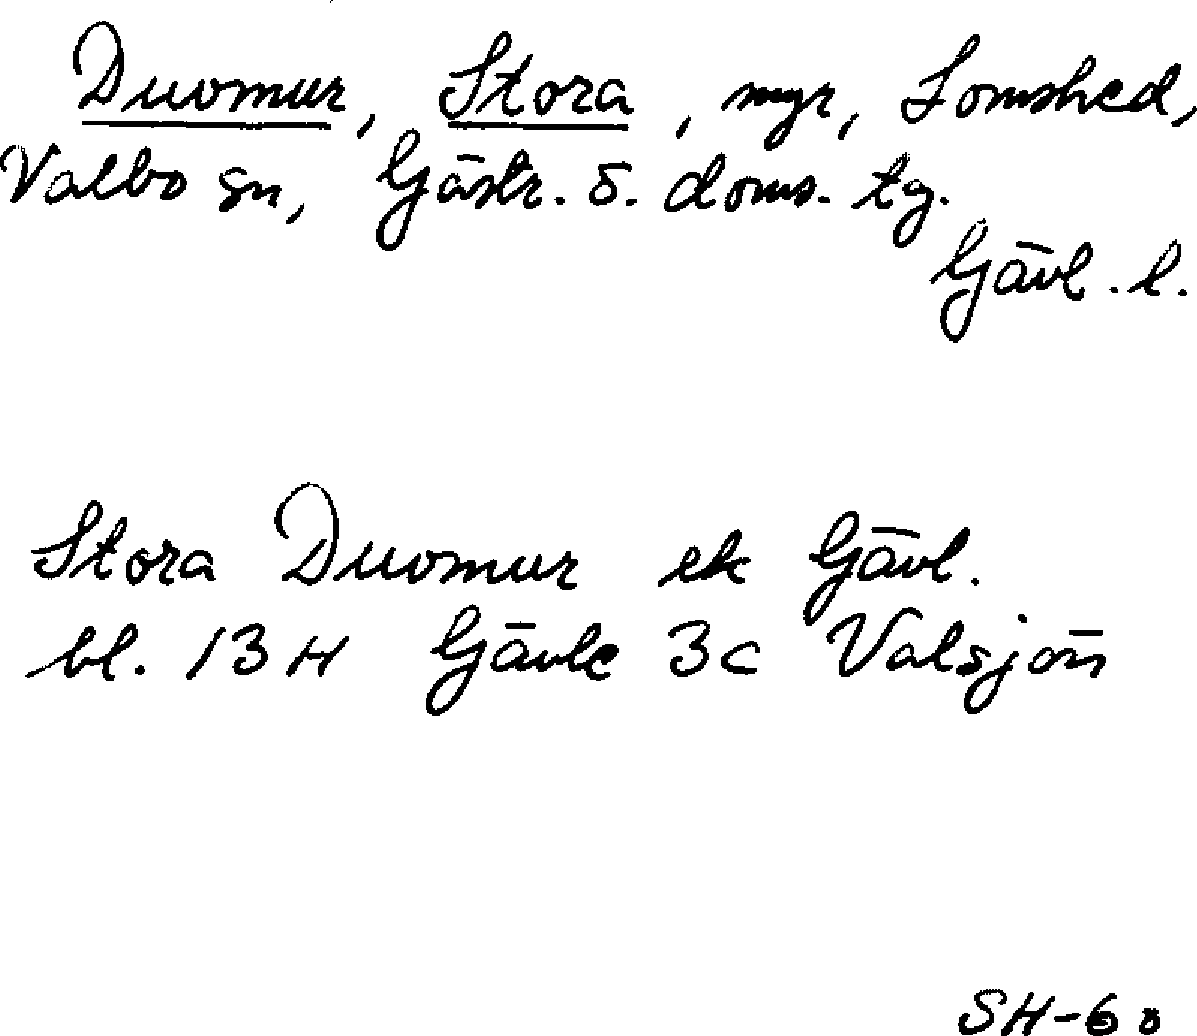 Duvomur, Stora, myr, Lomshed,
Valbo sn, Gästr. ö. doms. tg.
Gävl. l.
Stora Duvomur ek Gävl.
bl. 13 H Gävle 3c Valsjön
SH-68